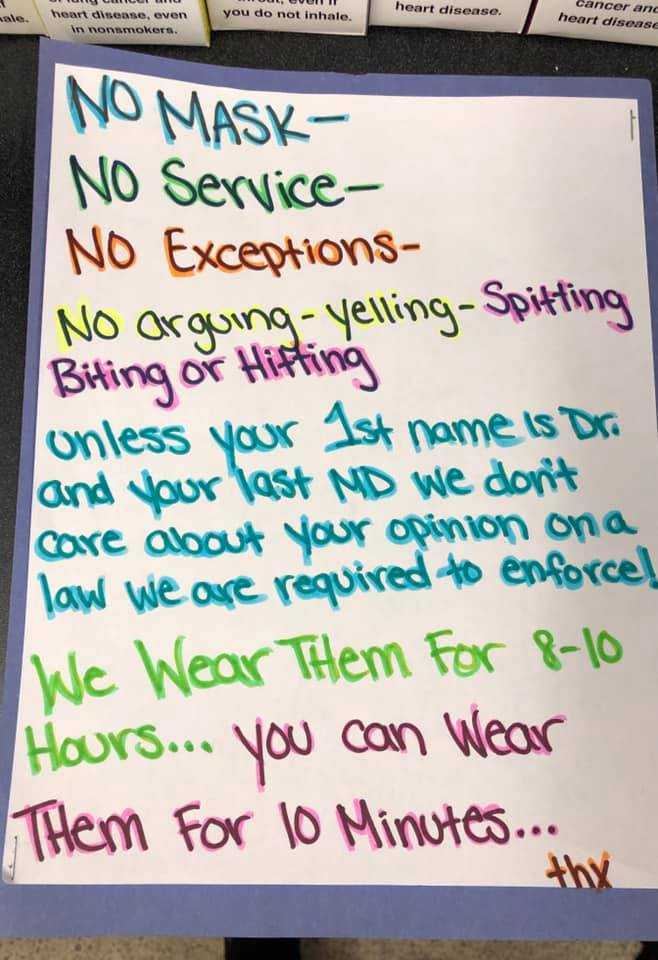 heart disease, even
in nonsmokers.
you do not inhale.
heart disease.
cancer and
heart disease
NO MASK-
NO Service-
NO Exceptions-
No arguing-yelling-Spitting
Biting or Hitting
unless your 1st name is Dr.
and your last MD we don't
care about your opinion on a
law we are required to enforce!
We Wear THem For 8-10
Hours... you can Wear
THem For 10 Minutes...
thx